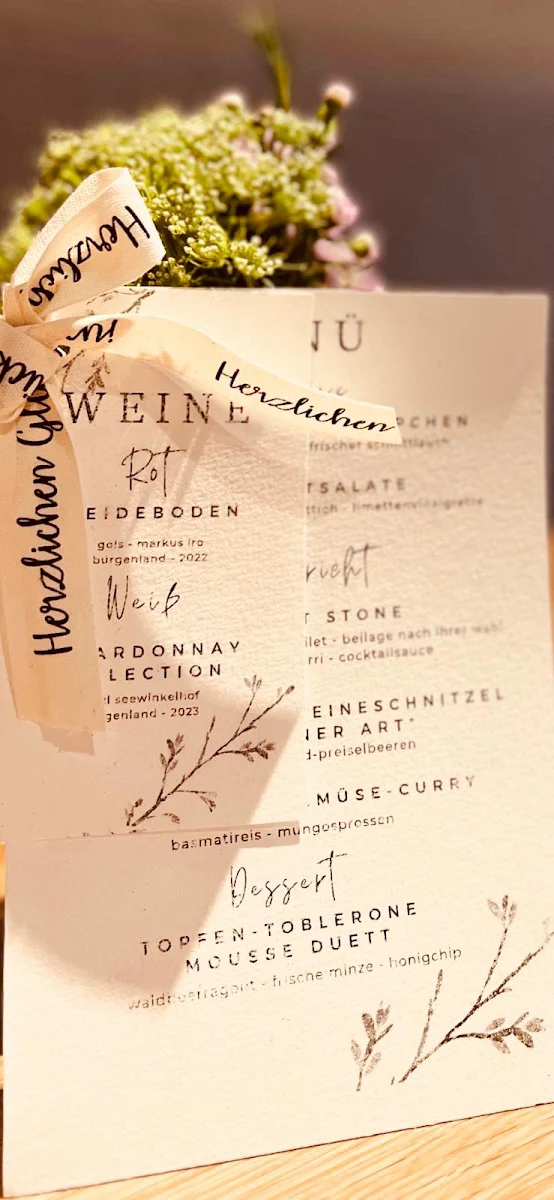 Herzlich
für
Herzlichen
Herzlichen Glück
WEINE
Rot
EIDEBODEN
gols - markus iro
burgenland - 2022
Weiß
ARDONNAY
LECTION
seewinkelhof
genland - 2023
NÜ
PCHEN
frischer schnittlauch
TSALATE
ttich - limettenvinaigrette
richt
T STONE
ilet - beilage nach ihrer wahl
rri - cocktailsauce
EINESCHNITZEL
NER ART"
d-preiselbeeren
MÜSE-CURRY
basmatireis - mungosprossen
Dessert
TOPFEN-TOBLERONE
MOUSSE DUETT
waldbeerragout - frische minze - honigchip